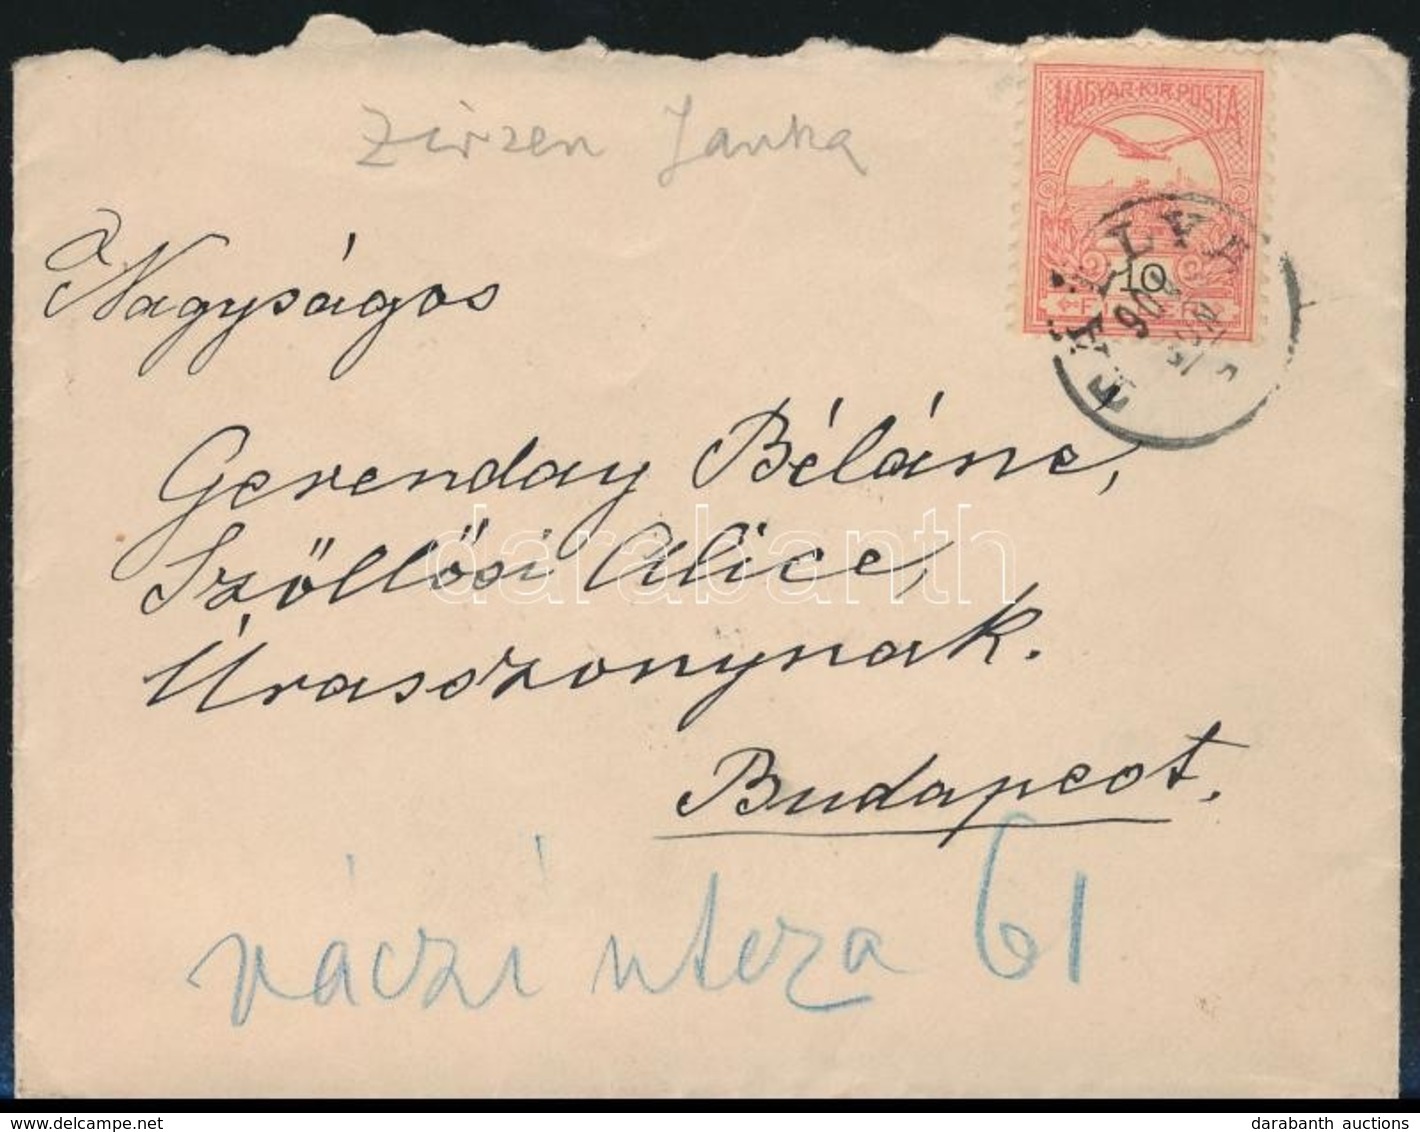 Zirzen Janka
MAGYAR·KIR·POSTA
10
FILLÉR
Nagyságos
Gerenday Béláné,
Szőllősi Alice,
Úrasszonynak.
Budapest.
váczi utcza 61
darabanth
delcampe.net
darabanth auctions